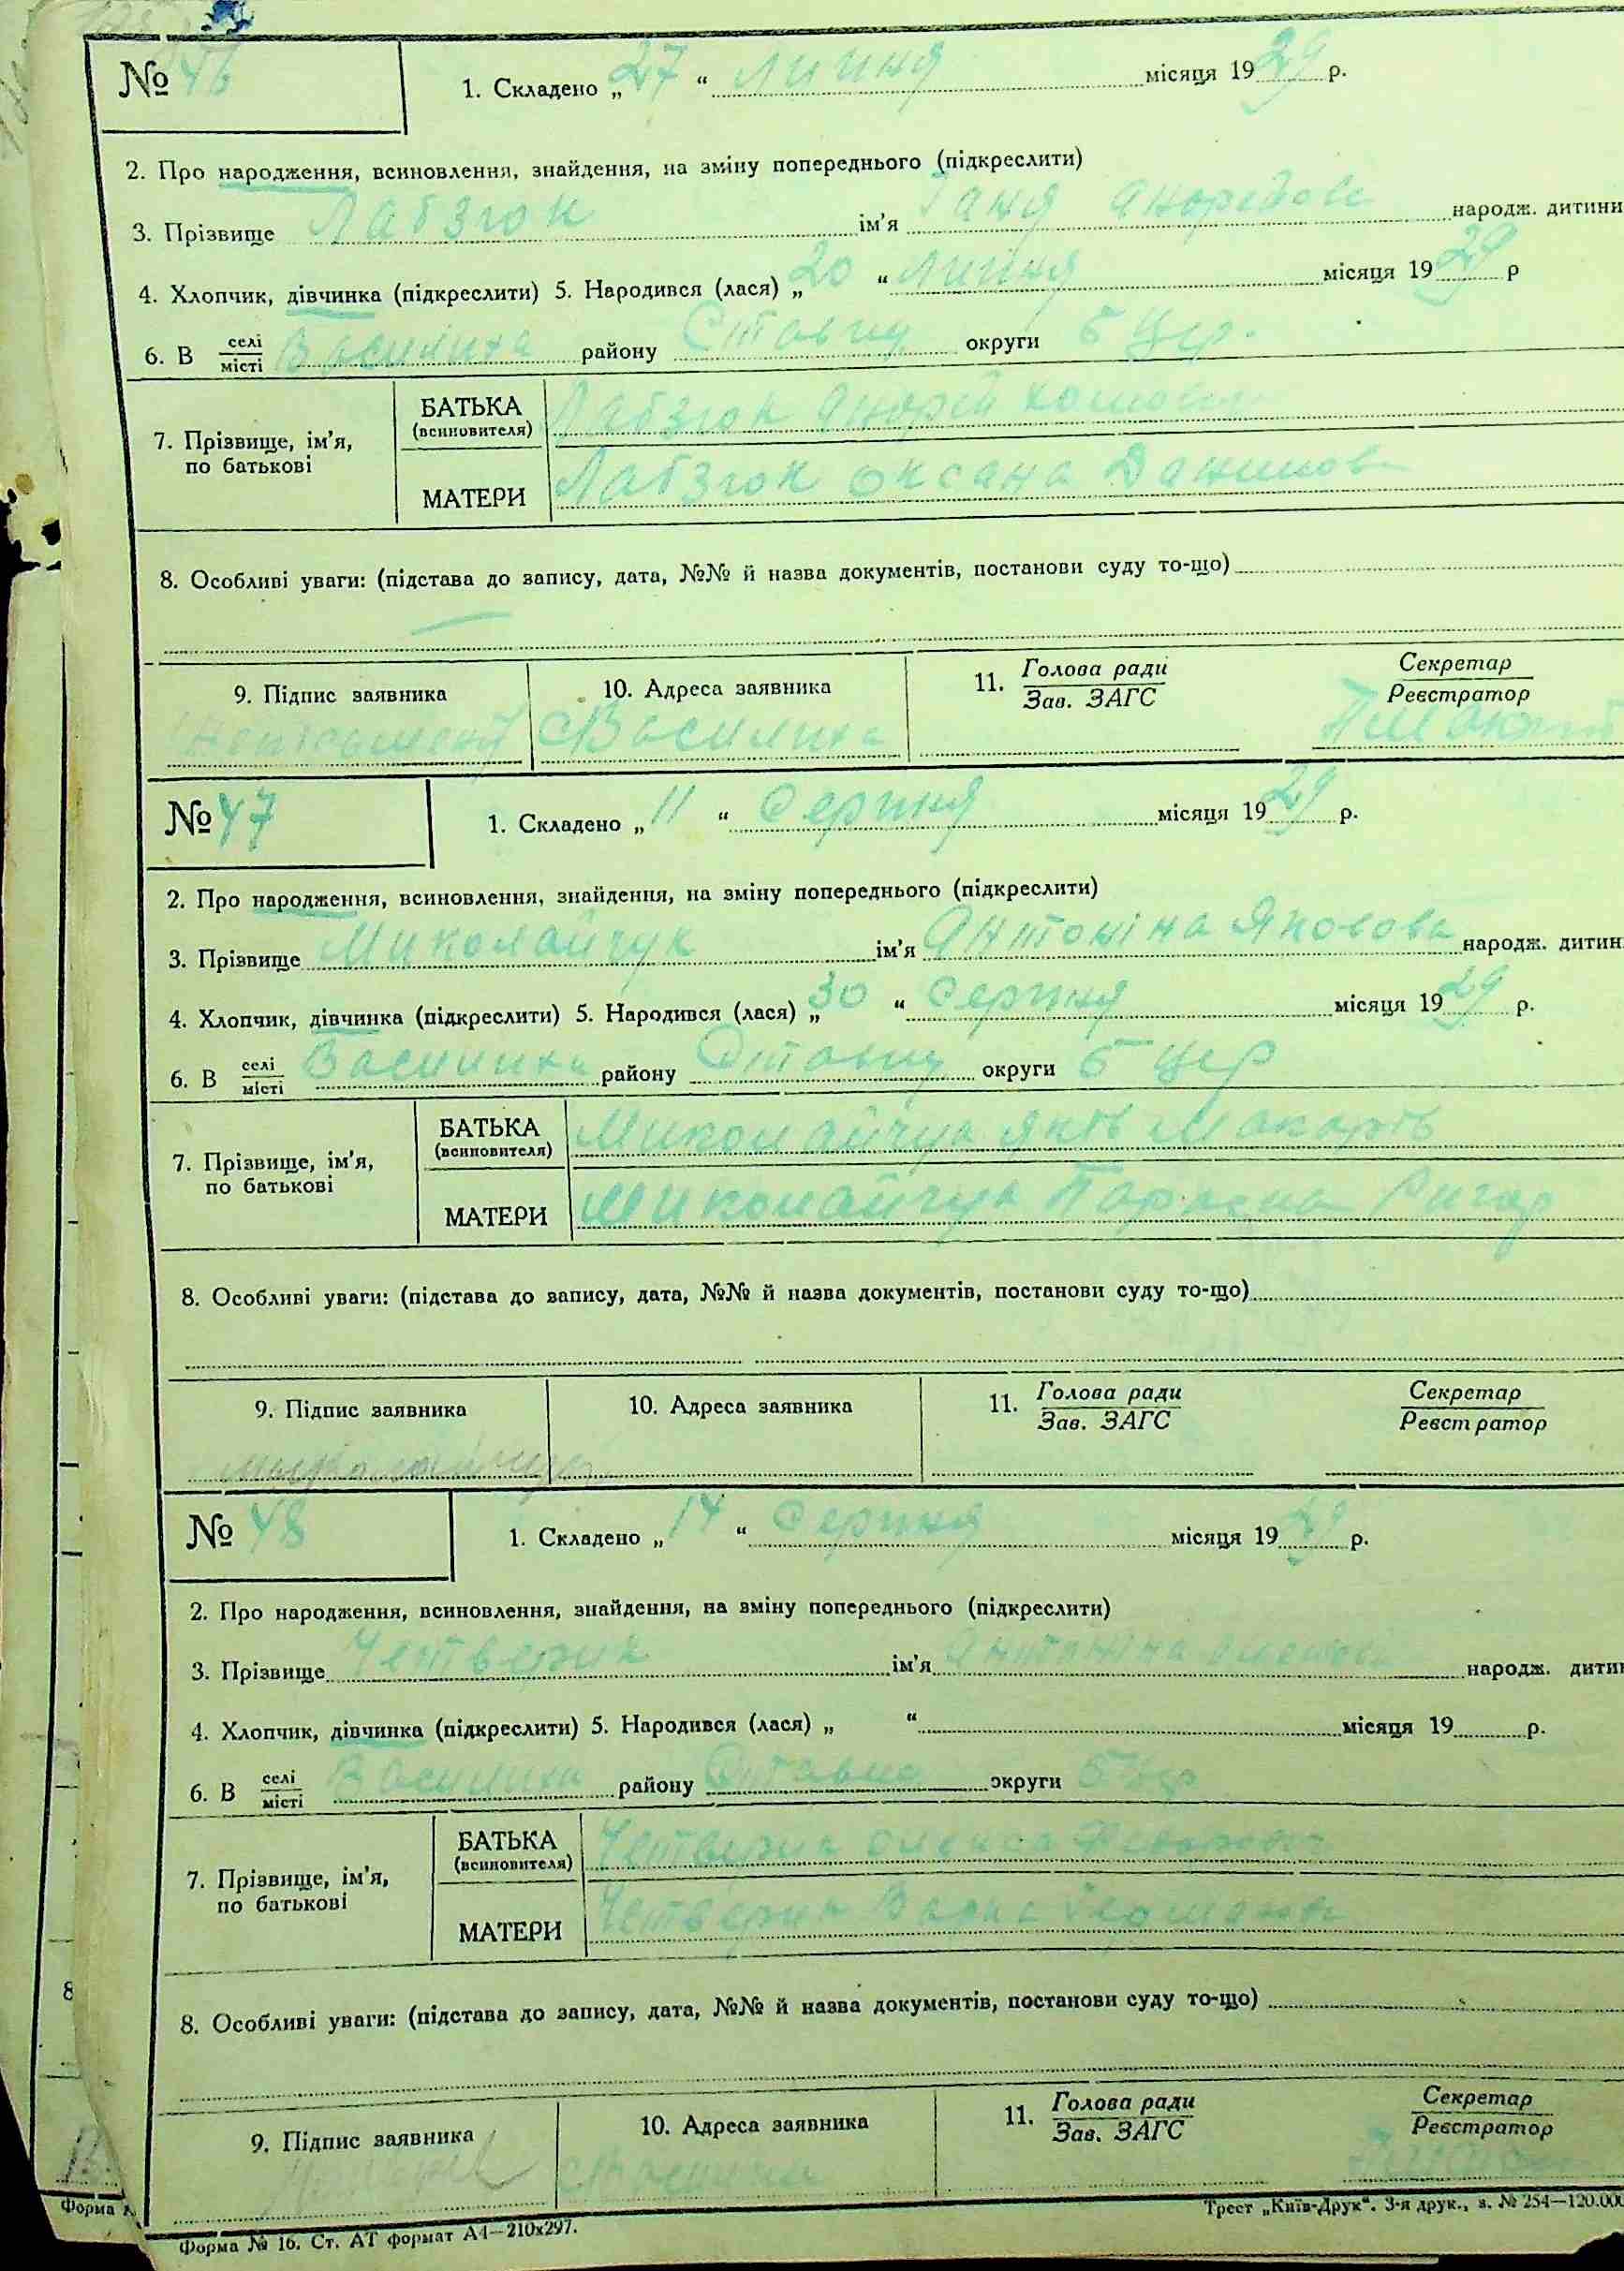 № 46 1. Складено „27“ липня місяця 1929 р.
2. Про народження, всиновлення, знайдення, на зміну попереднього (підкреслити)
3. Прізвище Лабзюк ім'я Ганя народж. дитини
4. Хлопчик, дівчинка (підкреслити) 5. Народився (лася) „20“ липня місяця 1929 р
6. В селі/місті Василиха району Ставищ округи Б Цер.
7. Прізвище, ім'я, по батькові
БАТЬКА (всиновителя) Лабзюк Андрій
МАТЕРИ Лабзюк Оксана Данилов
8. Особливі уваги: (підстава до запису, дата, №№ й назва документів, постанови суду то-що)
9. Підпис заявника 10. Адреса заявника 11. Голова ради/Зав. ЗАГС Секретар/Реєстратор
Неписьмений с Василиха
№ 47 1. Складено „11“ Серпня місяця 1929 р.
2. Про народження, всиновлення, знайдення, на зміну попереднього (підкреслити)
3. Прізвище Миколайчук ім'я Антоніна Яковова народж. дитин
4. Хлопчик, дівчинка (підкреслити) 5. Народився (лася) „30“ Серпня місяця 1929 р.
6. В селі/місті Василиха району Ставищ округи Б Цер
7. Прізвище, ім'я, по батькові
БАТЬКА (всиновителя) Миколайчук Яків Макарів
МАТЕРИ Миколайчук Параска
8. Особливі уваги: (підстава до запису, дата, №№ й назва документів, постанови суду то-що)
9. Підпис заявника 10. Адреса заявника 11. Голова ради/Зав. ЗАГС Секретар/Реєстратор
№ 48 1. Складено „14“ Серпня місяця 1929 р.
2. Про народження, всиновлення, знайдення, на зміну попереднього (підкреслити)
3. Прізвище Четверик ім'я Антоніна народж. дитин
4. Хлопчик, дівчинка (підкреслити) 5. Народився (лася) „ “ місяця 19 р.
6. В селі/місті Василиха району Ставищ округи Б Цер
7. Прізвище, ім'я, по батькові
БАТЬКА (всиновителя) Четверик
МАТЕРИ Четверик
8. Особливі уваги: (підстава до запису, дата, №№ й назва документів, постанови суду то-що)
9. Підпис заявника 10. Адреса заявника 11. Голова ради/Зав. ЗАГС Секретар/Реєстратор
Форма № 16. Ст. АТ формат А4—210х297. Трест „Київ-Друк“. 3-я друк., з. № 254—120.000